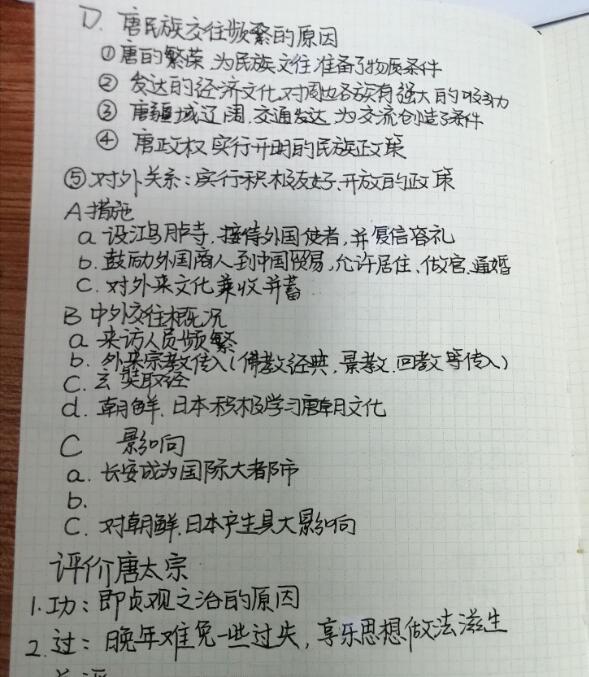 D. 唐民族交往频繁的原因
①唐的繁荣,为民族交往准备了物质条件
② 发达的经济文化对周边各族有强大的吸引力
③ 唐疆域辽阔,交通发达,为交流创造了条件
④ 唐政权实行开明的民族政策
⑤对外关系:实行积极友好、开放的政策
A措施
a 设鸿胪寺,接待外国使者,并复信容礼
b. 鼓励外国商人到中国贸易,允许居住、做官、通婚
C. 对外来文化兼收并蓄
B 中外交往概况
a 来访人员频繁
b. 外来宗教传入(佛教经典,景教、回教等传入)
C. 玄奘取经
d. 朝鲜、日本积极学习唐朝文化
C 影响
a. 长安成为国际大都市
b.
C. 对朝鲜、日本产生具大影响
评价唐太宗
1.功:即贞观之治的原因
2.过:晚年难免一些过失,享乐思想做法滋生